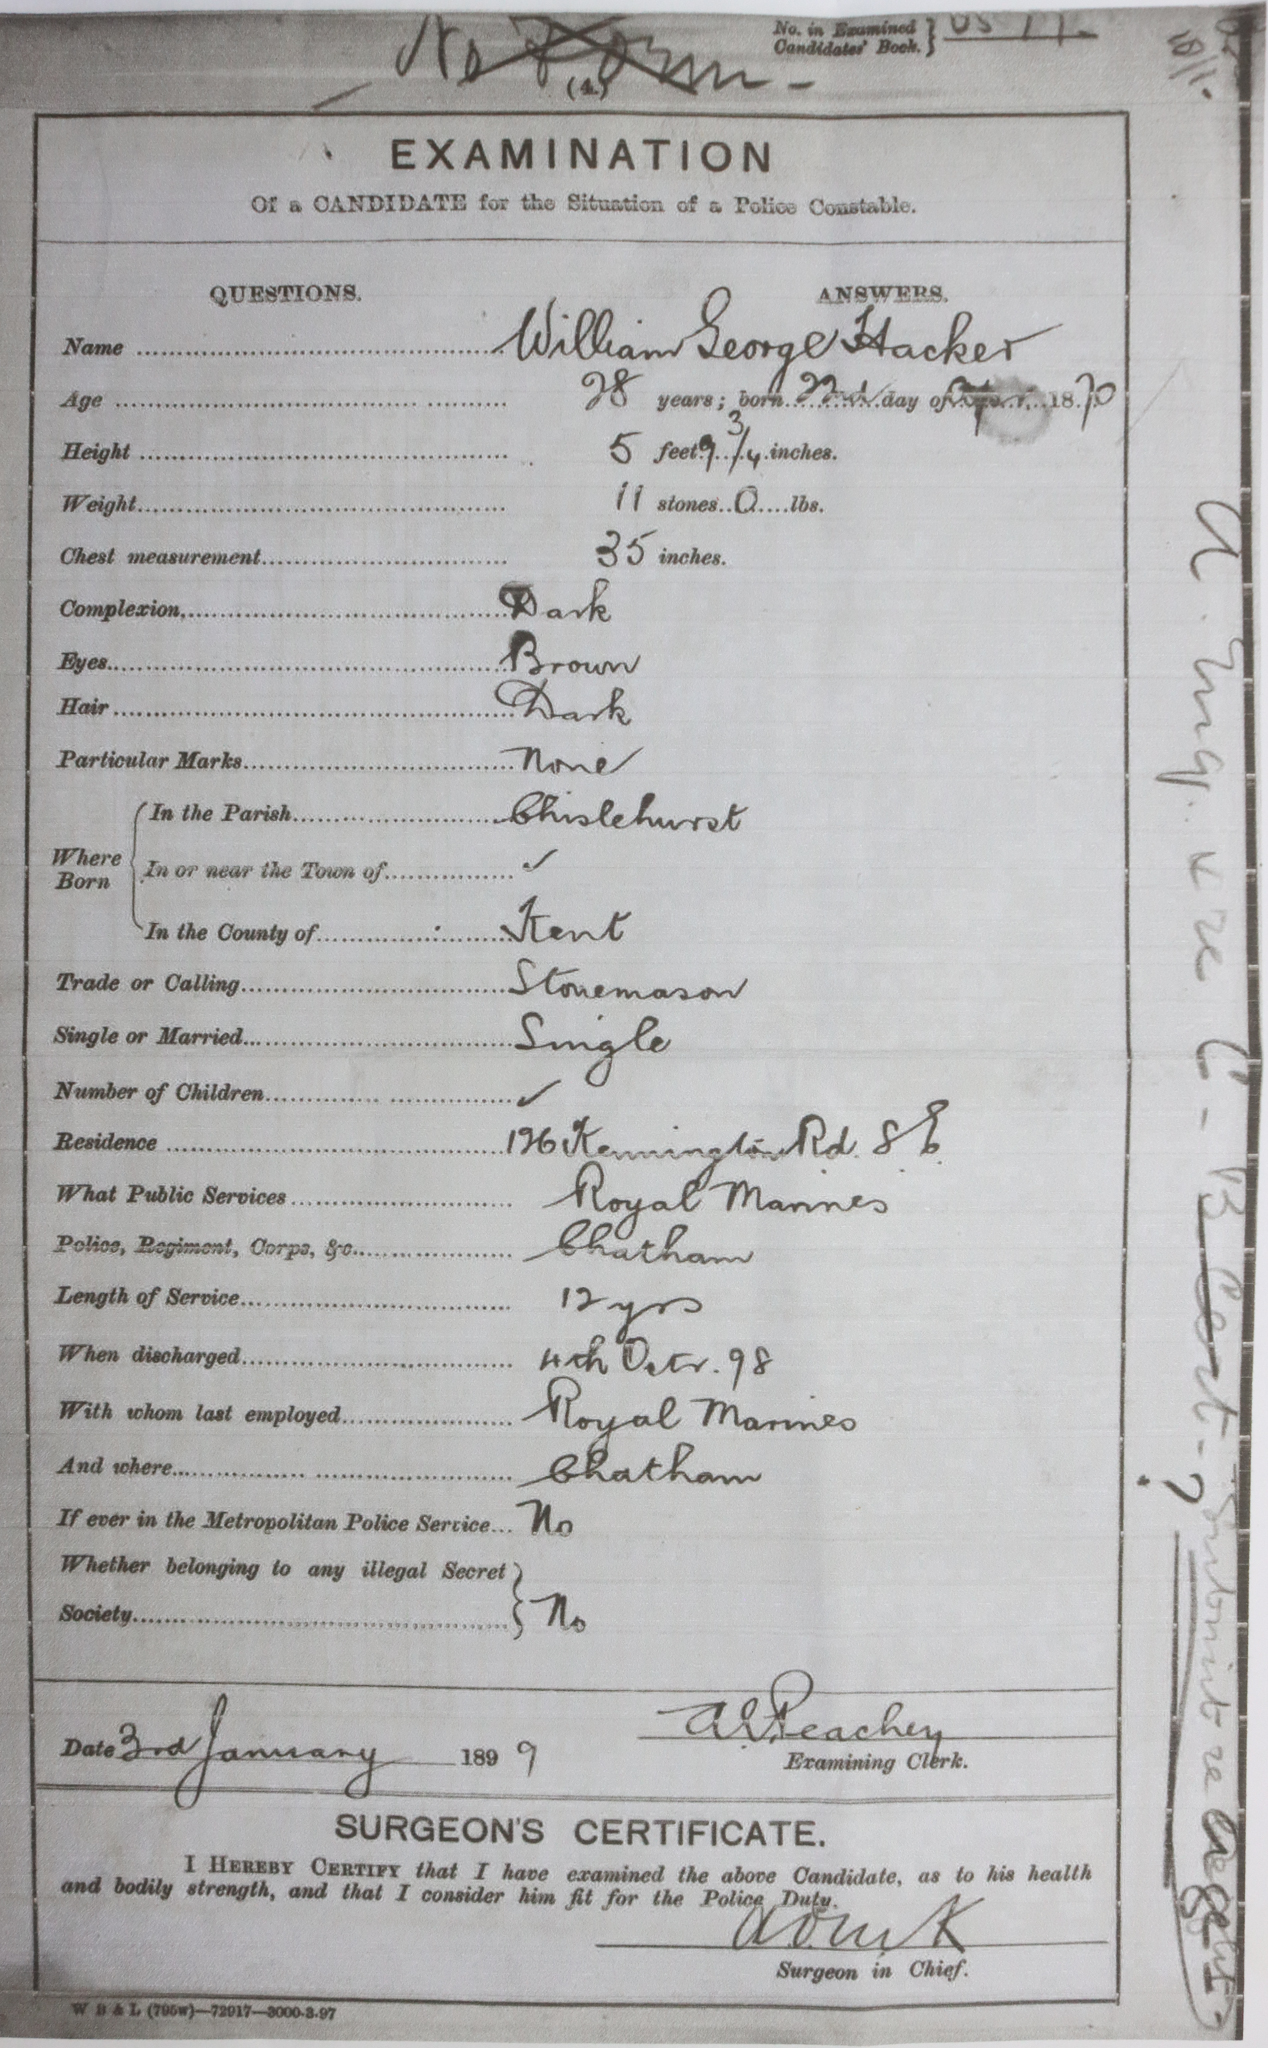 No. in Examined
Candidates' Book. }
No Form
(4.)
EXAMINATION
Of a CANDIDATE for the Situation of a Police Constable.
QUESTIONS. ANSWERS.
Name William George Hacker
Age 28 years; born 22nd day of 1870
Height 5 feet 9 3/4 inches.
Weight 11 stones 0 lbs.
Chest measurement 35 inches.
Complexion, Dark
Eyes Brown
Hair Dark
Particular Marks None
Where Born { In the Parish Chislehurst
In or near the Town of ✓
In the County of Kent
Trade or Calling Stonemason
Single or Married Single
Number of Children ✓
Residence 126 Kennington Rd. S E
What Public Services Royal Marines
Police, Regiment, Corps, &c. Chatham
Length of Service 12 yrs
When discharged 4th Octr. 98
With whom last employed Royal Marines
And where Chatham
If ever in the Metropolitan Police Service... No
Whether belonging to any illegal Secret
Society } No
Date 3rd January 1899
A Peachey
Examining Clerk.
SURGEON'S CERTIFICATE.
I HEREBY CERTIFY that I have examined the above Candidate, as to his health
and bodily strength, and that I consider him fit for the Police Duty.
Surgeon in Chief.
W B & L (795w)—72917—3000-3-97
B Cert - ?
Submit re height.